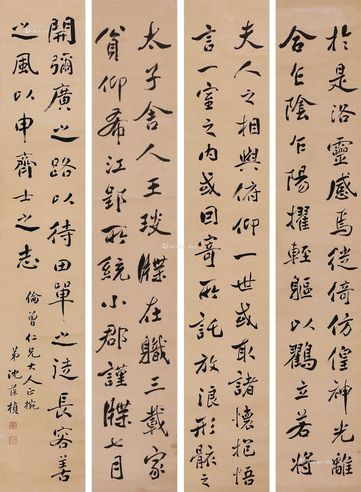 於是洛靈感焉徙倚仿偟神光離
合乍陰乍陽擢輕軀以鶴立若將
夫人之相與俯仰一世或取諸懷抱悟
言一室之內或因寄所託放浪形骸之
太子舍人王琰牒在職三載家
貧仰希江郢所統小郡謹牒七月
開彌廣之路以待田單之徒長容善
之風以申齊士之志
倫曾仁兄大人正捥
弟沈葆楨